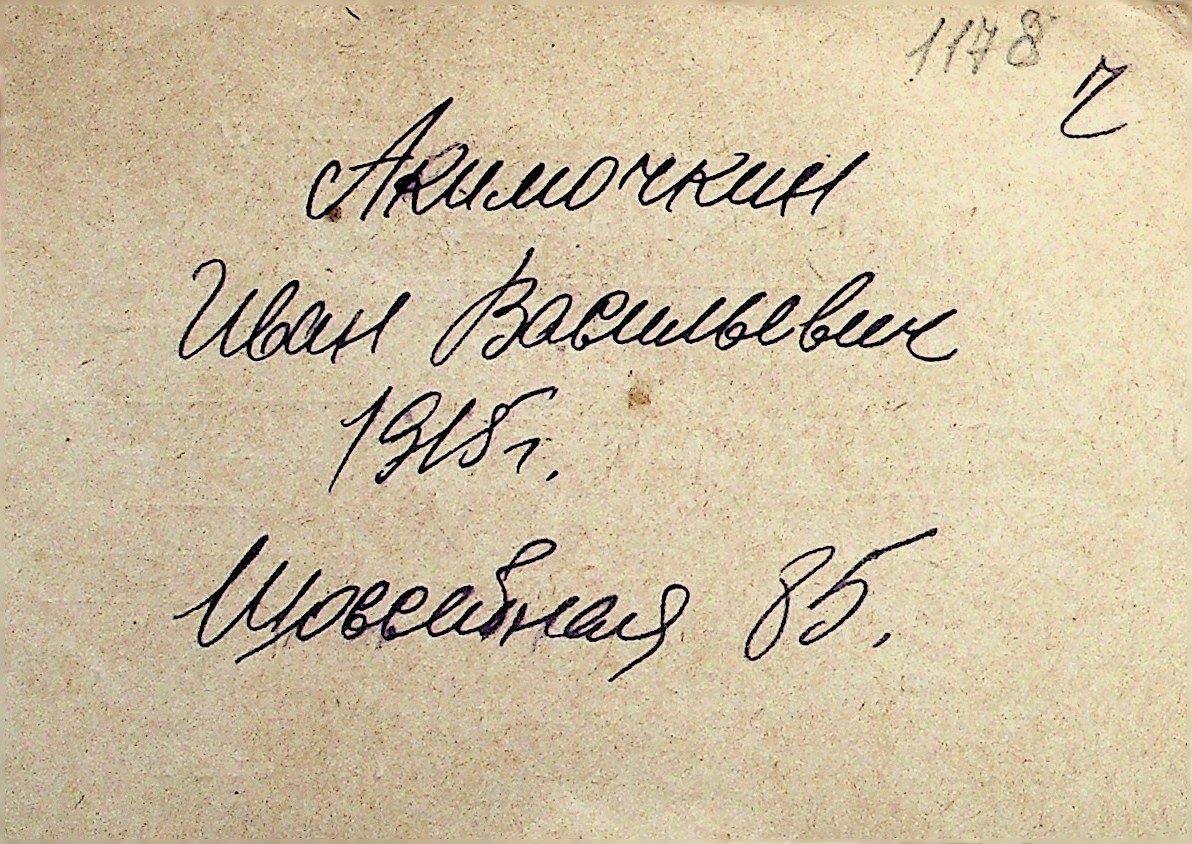 1178
ч
Акимочкин
Иван Васильевич
1915г.
Шоссейная 85.